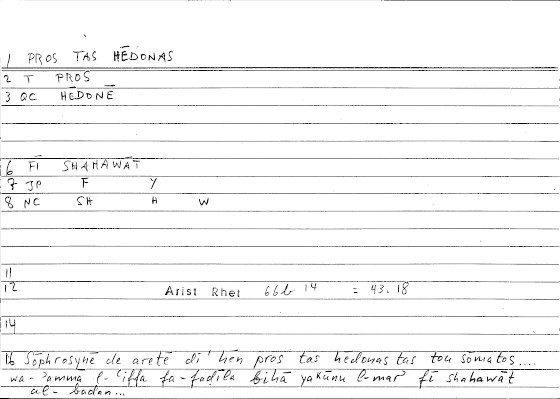 1 PROS TAS HĒDONAS
2 T PROS
3 QC HĒDONĒ
6 FĪ SHAHAWĀT
7 JP F Y
8 NC SH H W
11
12 Arist Rhet 66b 14 = 43.18
14
16 Sōphrosynē de aretē di' hēn pros tas hēdonas tas tou sōmatos....
wa-'ammā l-'iffa fa-faḍīla bihā yakūnu l-mar' fī shahawāt
al-badan...